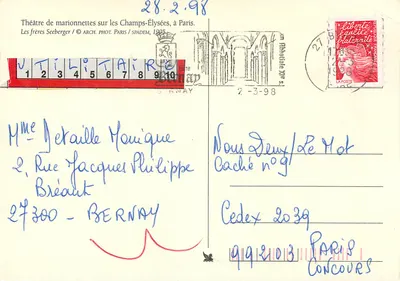 28.2.98
Théâtre de marionnettes sur les Champs-Élysées, à Paris.
Les frères Seeberger / © ARCH. PHOT. PARIS / SPADEM,
liberté
égalité
fraternité
UTILITAIRE
1 2 3 4 5 6 7 8 9 10
BERNAY
2-3-98
Mme Detaille Monique
2, Rue Jacques Philippe
Bréant
27300 - BERNAY
Nous Deux / Le Mot
Caché n°9
Cedex 2039
99203 PARIS
CONCOURS